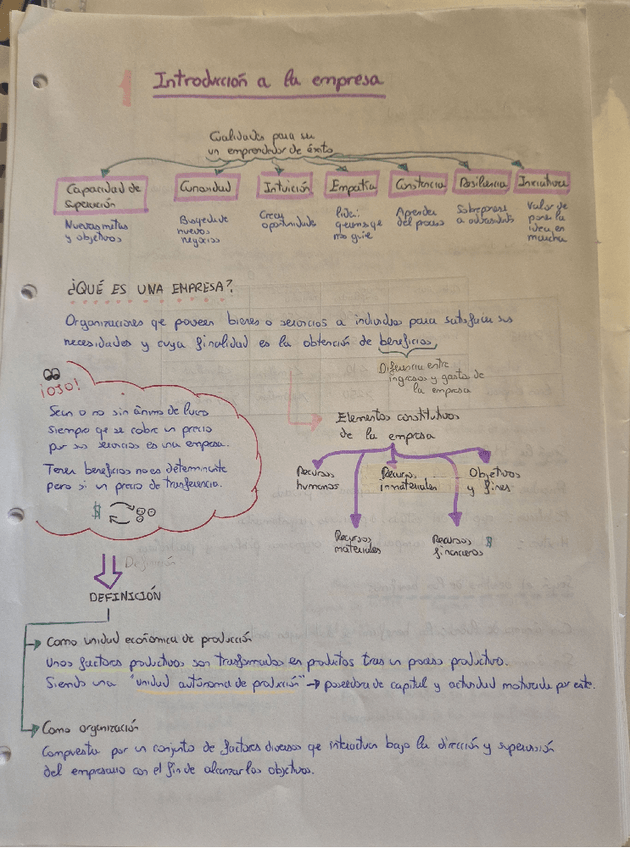 1
Introducción a la empresa
Cualidades para ser
un emprendedor de éxito
Capacidad de
superación
Curiosidad
Intuición
Empatía
Constancia
Resiliencia
Iniciativa
Nuevas metas
y objetivos
Búsqueda de
nuevos
negocios
Crear
oportunidades
líder:
me guíe
Aprender
del proceso
Sobreponerse
a
Valor de
poner la
idea en
marcha
¿QUÉ ES UNA EMPRESA?
Organizaciones qe poseen bienes o servicios a individuos para satisfacer sus
necesidades y cuya finalidad es la obtención de beneficios.
Diferencia entre
ingresos y gastos de
la empresa
¡OJO!
Sean o no sin ánimo de lucro
siempre qe se cobre un precio
por sus servicios es una empresa.
Tener beneficios no es determinante
pero si un precio de transferencia.
$
Elementos constitutivos
de la empresa
Recursos
humanos
Recursos
inmateriales
Objetivos
y fines
Recursos
materiales
Recursos $
financieros
Definición
DEFINICIÓN
Como unidad económica de producción
Unos factores productivos son trasformados en productos tras un proceso productivo.
Siendo una "unidad autónoma de producción" → poseedora de capital y actividad motivada por este.
Como organización
Compuesta por un conjunto de factores diversos qe interactúan bajo la dirección y supervisión
del empresario con el fin de alcanzar los objetivos.